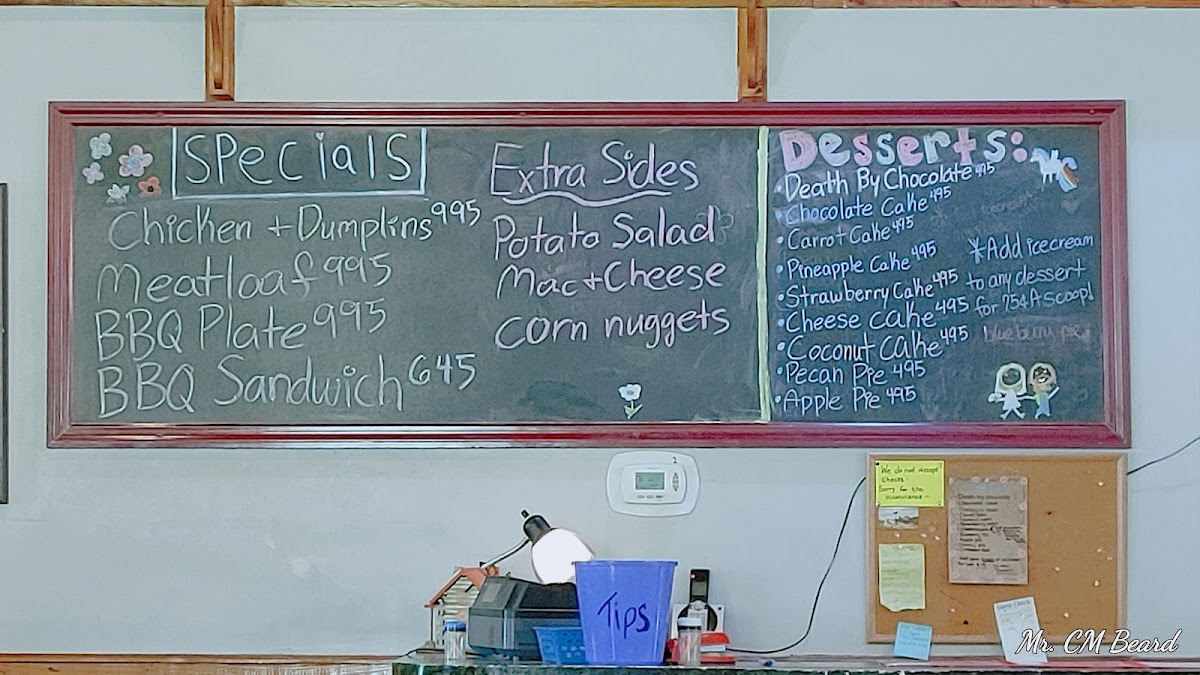 SPecials
Chicken + Dumplins 995
Meatloaf 995
BBQ Plate 995
BBQ Sandwich 645
Extra Sides
Potato Salad
Mac + Cheese
corn nuggets
Desserts:
• Death By Chocolate 495
• Chocolate Cake 495
• Carrot Cake 495
• Pineapple Cake 495
• Strawberry Cake 495
• Cheese cake 495
• Coconut cake 495
• Pecan Pie 495
• Apple Pie 495
*Add icecream
to any dessert
for 75¢ A scoop!
blueberry pie
We do not accept
checks.
Sorry for the
inconvenience -
Tips
Mr. CM Beard